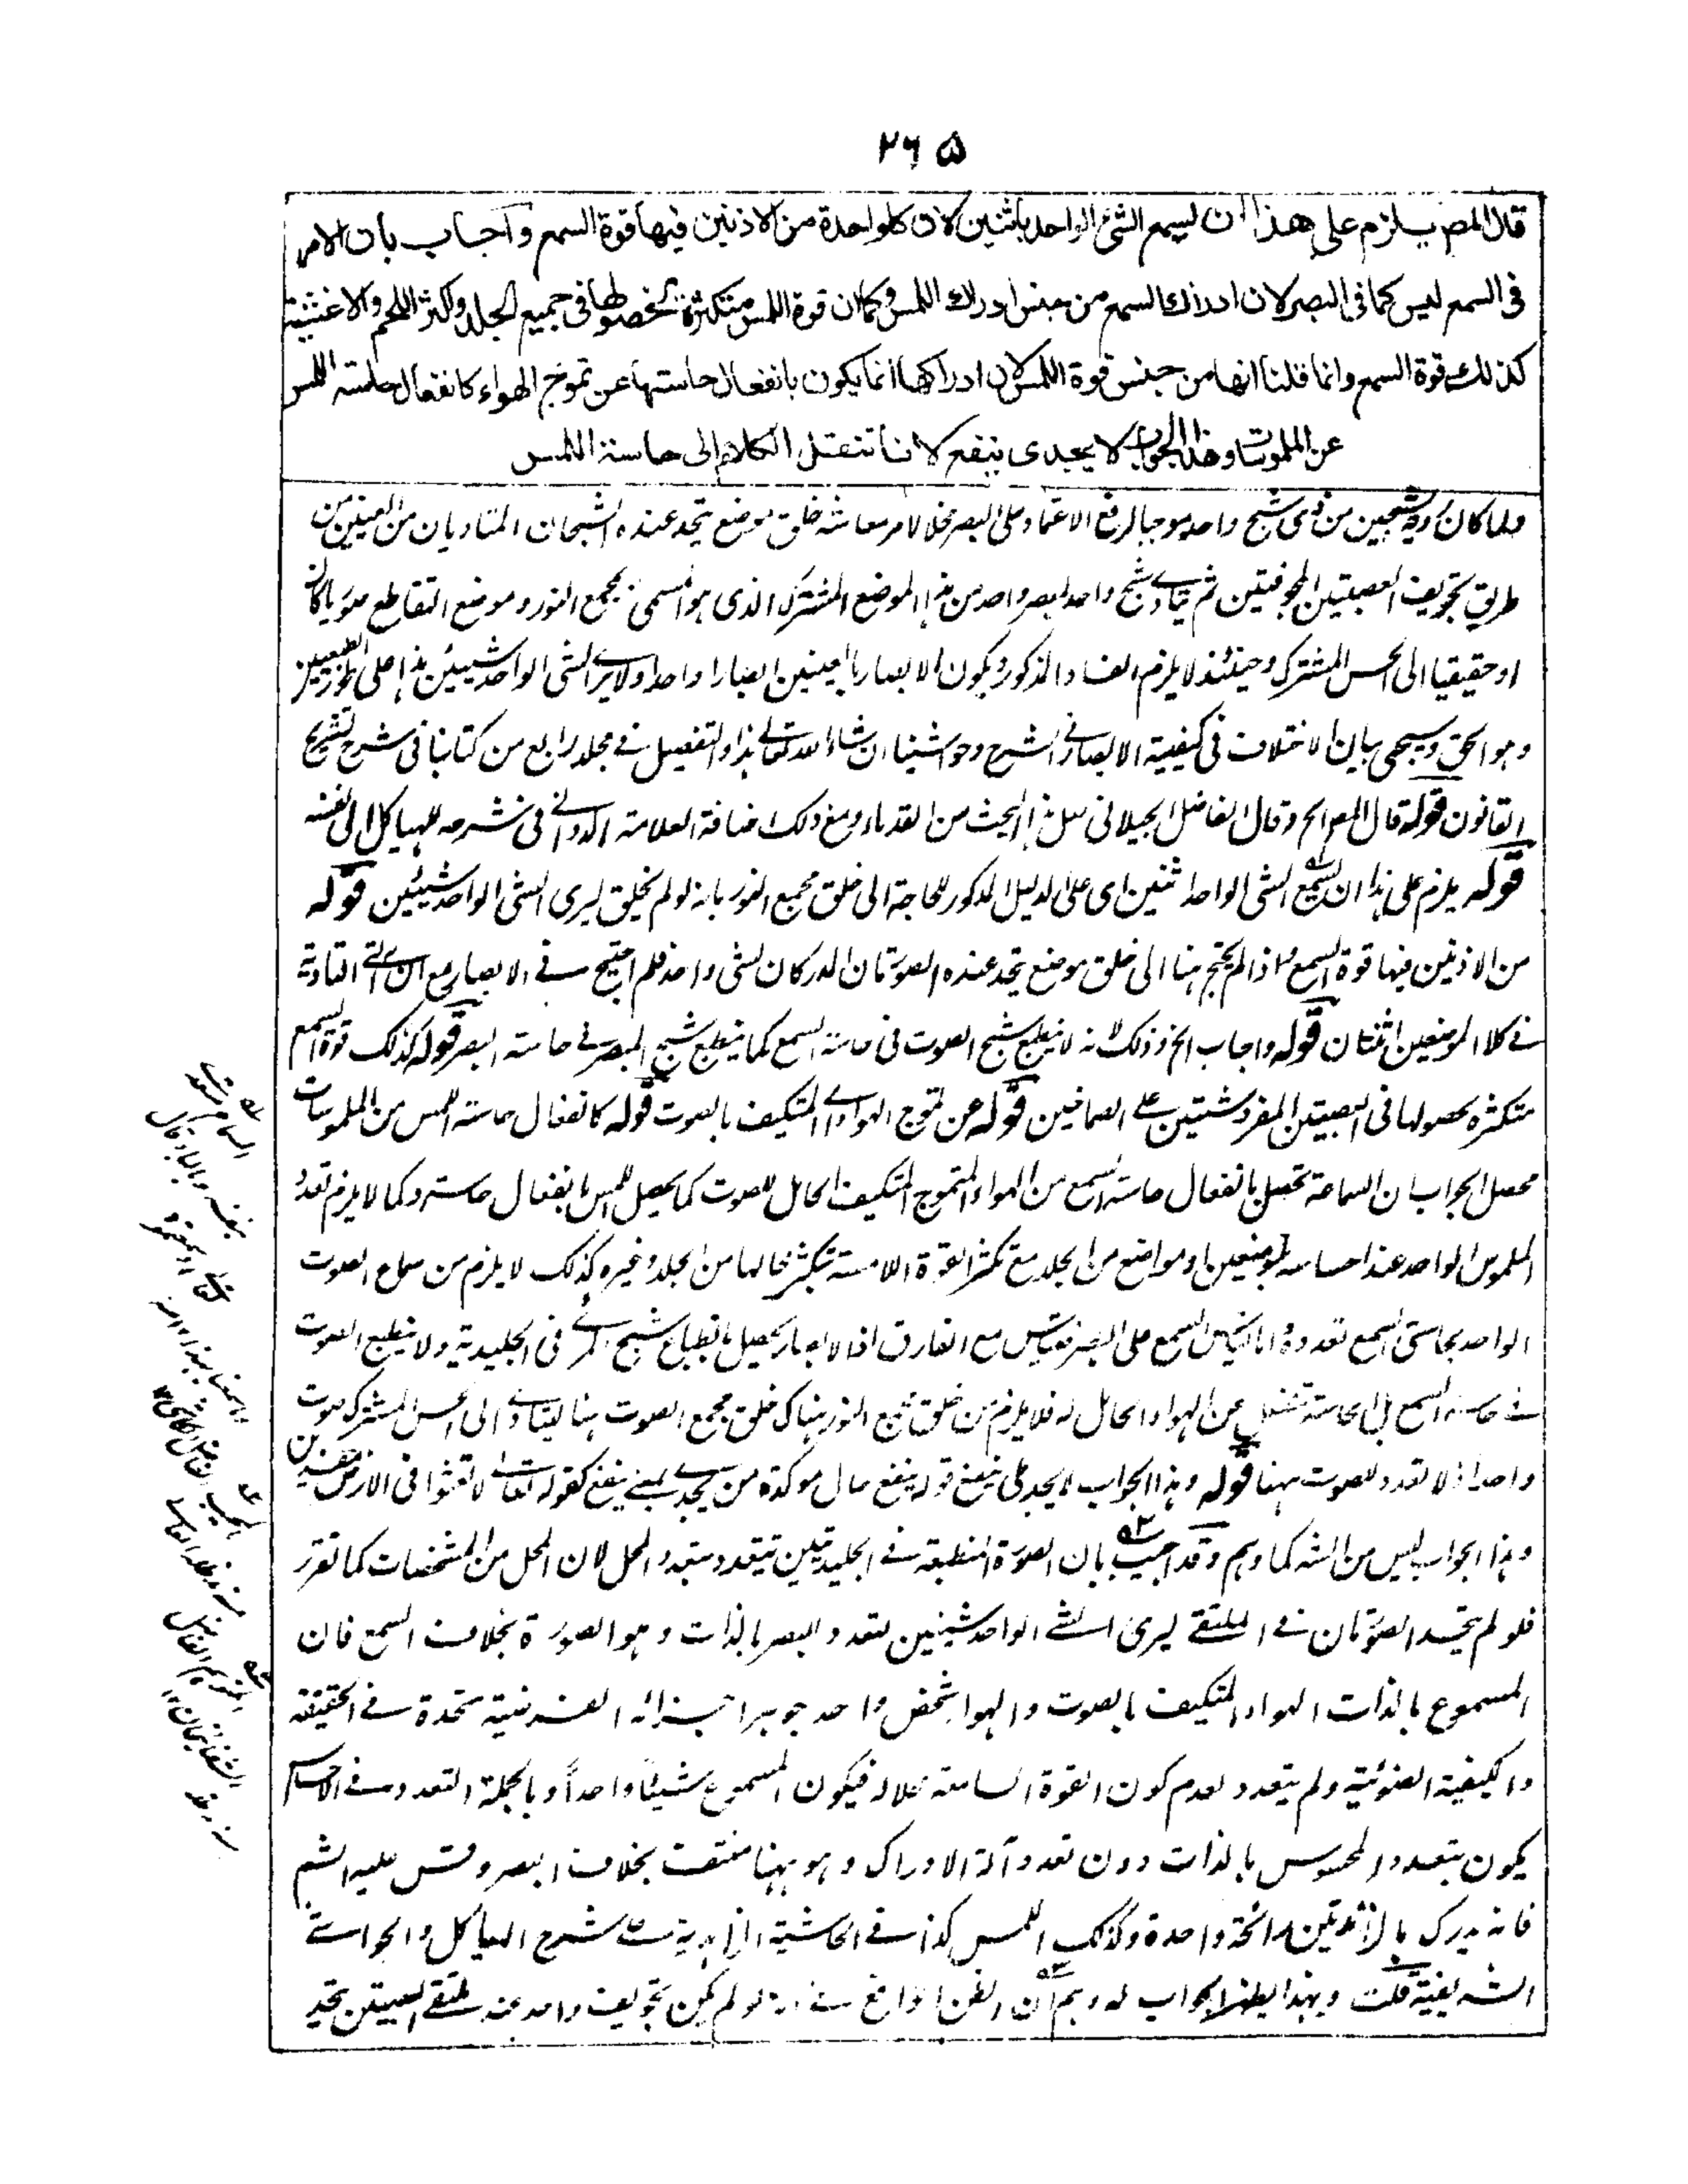 ٢٦٥
قال المص يلزم على هذا ان يسمع الشئ الواحد باثنين لان كل واحدة من الاذنين فيها قوة السمع واجاب بان الامر
فى السمع ليس كما فى البصر لان ادراك السمع من جنس ادراك اللمس وكما ان قوة اللمس متكثرة بحصولها فى جميع الجلد واكثر اللحم والاغشية
كذلك قوة السمع وانما قلنا انها من جنس قوة اللمس لان ادراكها انما يكون بانفعال حاستها عن تموج الهواء كانفعال حاسة اللمس
عن الملموسات وهذا الجواب لا يجدى بنفع لانا ننقل الكلام الى حاسة اللمس
ولما كان رؤية شبحين من ذى شبح واحد موجبا لرفع الاعتماد على البصر مخلا لامر معاشه خلق موضع يتحد عنده الشبحان المتاديان من العينين من
طريق تجويف العصبتين المجوفتين ثم يتادى شبح واحد لمبصر واحد من هذا الموضع المشترك الذى هو المسمى بمجمع النور وموضع التقاطع صوريا كان
او حقيقيا الى الحس المشترك وحينئذ لا يلزم الفساد المذكور ويكون الابصار بالعينين ابصارا واحدا ولا يرى الشئ الواحد شيئين هذا على طور الطبعيين
وهو الحق وسيجئ بيان الاختلاف فى كيفية الابصار فى الشرح وحواشينا ان شاء الله تعالى هذا والتفصيل فى مجلد رابع من كتابنا فى شرح تشريح
القانون قوله قال المص الخ وقال الفاضل الجيلانى مثل هذا البحث من القدماء ومع ذلك اضافة العلامة الدوانى فى شرحه للهياكل الى نفسه
قوله يلزم على هذا ان يسمع الشئ الواحد اثنين اى على الدليل المذكور للحاجة الى خلق مجمع النور بانه لو لم يخلق ليرى الشئ الواحد شيئين قوله
من الاذنين فيها قوة السمع اذ لم يحتج هنا الى خلق موضع يتحد عنده الصوتان المدركان لشئ واحد فلم احتيج فى الابصار مع ان الآلة التادية
فى كلا الموضعين اثنتان قوله واجاب الخ وذلك لانه لا ينطبع شبح الصوت فى حاسة السمع كما ينطبع شبح المبصر فى حاسة البصر قوله كذلك قوة السمع
متكثرة بحصولها فى العصبتين المفروشتين على الصماخين قوله عن تموج الهواء اى المتكيف بالصوت قوله كانفعال حاسة اللمس من الملموسات
محصل الجواب ان السماعة تحصل بانفعال حاسة السمع من الهواء المتموج المتكيف الحامل للصوت كما يحصل اللمس بانفعال حاسته وكما لا يلزم تعدد
الملموس الواحد عند احساسه بموضعين او مواضع من الجلد مع تكثر القوة اللامسة بتكثر محالها من الجلد وغيره كذلك لا يلزم من سماع الصوت
الواحد بحاستى السمع تعدده واما قياس السمع على البصر فقياس مع الفارق اذ الابصار يحصل بانطباع شبح المرئى فى الجليدية ولا ينطبع الصوت
فى حاسة السمع بل الحاسة تنفعل عن الهواء الحامل له فلا يلزم من خلق مجمع النور هناك خلق مجمع الصوت هنا ليتادى الى الحس المشترك صوت
واحد اذ لا تعدد للصوت ههنا قوله وهذا الجواب لا يجدى بنفع قوله بنفع حال موكدة من يجدى بمعنى ينفع كقوله تعالى لا تعثوا فى الارض مفسدين
وهذا الجواب ليس من الشه كما وهم وقد اجيب بان الصورة المنطبعة فى الجليديتين تتعدد بتعدد المحل لان المحل من المشخصات كما تقرر
فلو لم يتحد الصورتان فى الملتقى ليرى الشئ الواحد شيئين لتعدد المبصر بالذات وهو الصورة بخلاف السمع فان
المسموع بالذات الهواء المتكيف بالصوت والهواء شخص واحد جوهرا اجزائه الفرضية متحدة فى الحقيقة
والكيفية الصوتية ولم يتعدد لعدم كون القوة السامعة محلا له فيكون المسموع شيئا واحدا وبالجملة التعدد فى الاحساس
يكون بتعدد المحسوس بالذات دون تعدد آلة الادراك وهو ههنا منتف بخلاف البصر وقس عليه الشم
فانه يدرك بالزائدتين رائحة واحدة وكذلك اللمس كذا فى الحاشية الزاهدية على شرح الهياكل والحواشى
الشريفية قلت وبهذا يظهر الجواب له وهم ان الظن الواقع فى انه لو لم يكن تجويف واحد عند ملتقى العصبتين يتحد